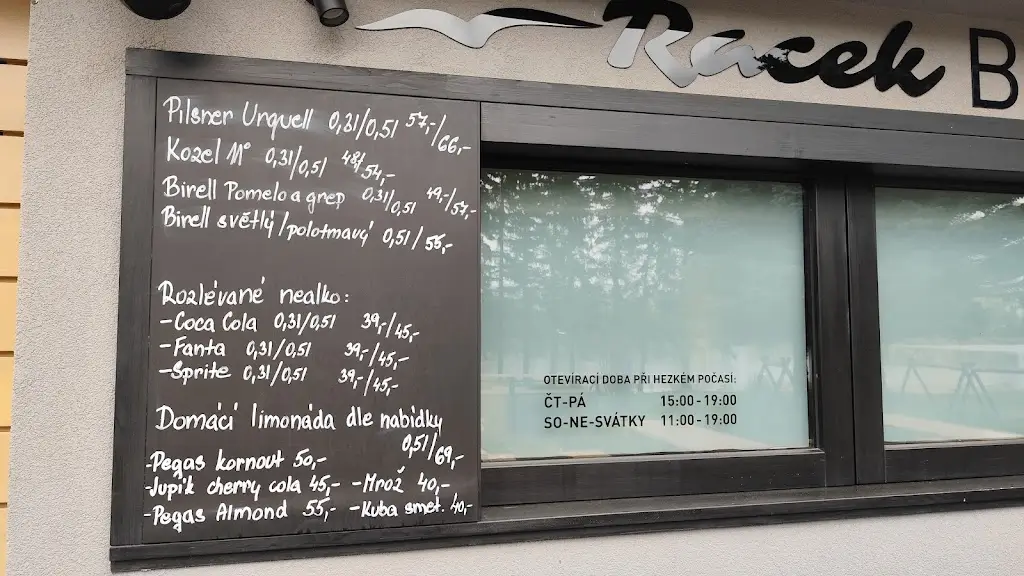 Racek B
Pilsner Urquell 0,3l/0,5l 57,-/66,-
Kozel 11° 0,3l/0,5l 48/54,-
Birell Pomelo a grep 0,3l/0,5l 49,-/57,-
Birell světlý/polotmavý 0,5l/55,-
Rozlévané nealko:
-Coca Cola 0,3l/0,5l 39,-/45,-
-Fanta 0,3l/0,5l 39,-/45,-
-Sprite 0,3l/0,5l 39,-/45,-
Domácí limonáda dle nabídky
0,5l/69,-
-Pegas kornout 50,-
-Jupík cherry cola 45,- -Mrož 40,-
-Pegas Almond 55,- -Kuba smet. 40,-
OTEVÍRACÍ DOBA PŘI HEZKÉM POČASÍ:
ČT-PÁ 15:00-19:00
SO-NE-SVÁTKY 11:00-19:00